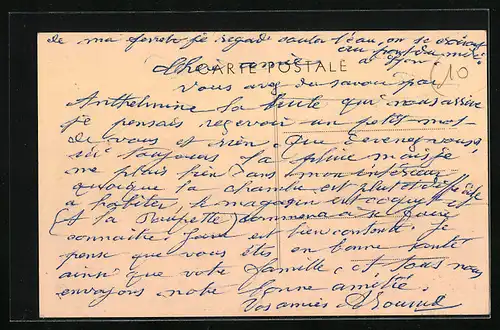 de ma fenetre je regarde couler l'eau, on se croirait
au pont du midi
CARTE POSTALE
Chers amis à Lyon.
10
Vous avez du savoir par
Anthelmine la tuile qui nous arrive
je pensais recevoir un petit mot
de vous et rien. Que devenez-vous,
ici toujours la pluie mais je
me plais bien dans mon intérieur
quoique la chambre est plutot difficile
à habiter, le magasin est coquet et
(A la Poupette) commence à se faire
connaitre. est bien contente. Je
pense que vous êtes en bonne santé
ainsi que votre famille, et tous nous
envoyons notre bonne amitié.
Vos amies